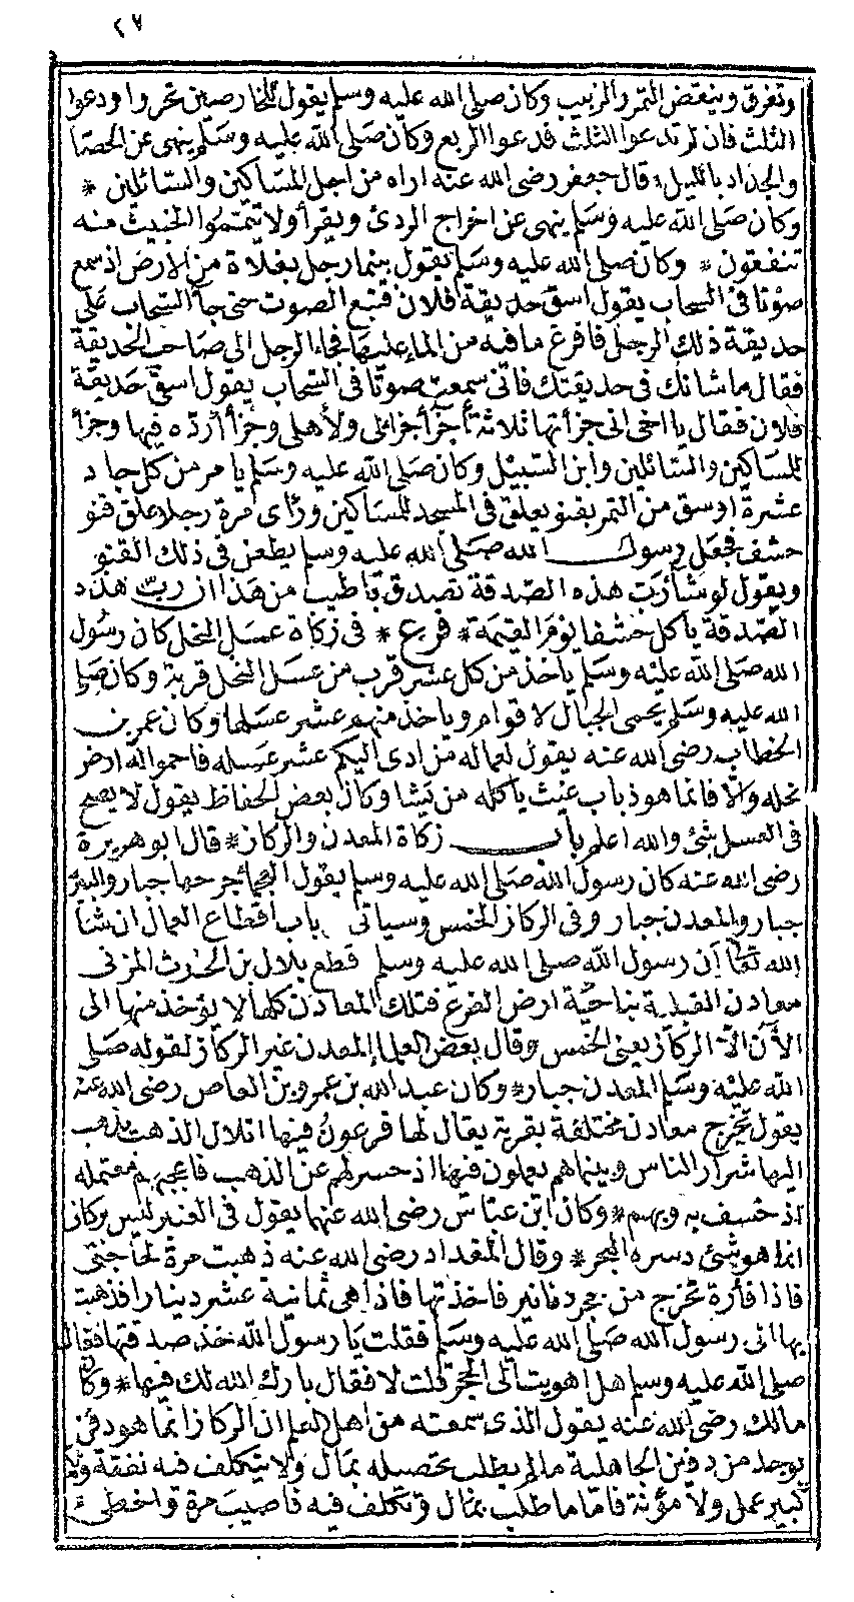 ٢٧
وتفرق وينقض التمر والزبيب وكان صلى الله عليه وسلم يقول للخارصين تحروا ودعوا
الثلث فان لم تدعوا الثلث فدعوا الربع وكان صلى الله عليه وسلم ينهى عن الحصاد
والجذاذ بالليل قال جعفر رضى الله عنه اراه من اجل المساكين والسائلين *
وكان صلى الله عليه وسلم ينهى عن اخراج الردئ ويقرأ ولا تيمموا الخبيث منه
تنفقون * وكان صلى الله عليه وسلم يقول بينما رجل بفلاة من الارض اذ سمع
صوتا فى السحاب يقول اسق حديقة فلان فتبع الصوت حتى جأ السحاب على
حديقة ذلك الرجل فافرغ ما فيه من الماء عليها فجاء الرجل الى صاحب الحديقة
فقال ما شانك فى حديقتك فانى سمعت صوتا فى السحاب يقول اسق حديقة
فلان فقال يا اخى انى جزأتها ثلاثة أجزأ جزألى ولأهلى وجزأ أرده فيها وجزأ
للمساكين والسائلين وابن السبيل وكان صلى الله عليه وسلم يامر من كل جاد
عشرة اوسق من التمر بقنو يعلق فى المسجد للمساكين ورأى مرة رجلا علق قنو
حشف فجعل رسول الله صلى الله عليه وسلم يطعن فى ذلك القنو
ويقول لو شأ رب هذه الصدقة تصدق باطيب من هذا ان رب هذه
الصدقة يأكل حشفا يوم القيمة * فرع * فى زكاة عسل النحل كان رسول
الله صلى الله عليه وسلم ياخذ من كل عشر قرب من عسل النحل قربة وكان صلى
الله عليه وسلم يحمى الجبال لاقوام وياخذ منهم عشر عسلها وكان عمر بن
الخطاب رضى الله عنه يقول لعماله من ادى اليكم عشر عسله فاحموا له ارض
نحله والا فانما هو ذباب غيث ياكله من يشا وكان بعض الحفاظ يقول لا يصح
فى العسل شئ والله اعلم باب زكاة المعدن والركاز * قال ابو هريرة
رضى الله عنه كان رسول الله صلى الله عليه وسلم يقول العجمأ جرحها جبار والبئر
جبار والمعدن جبار وفى الركاز الخمس وسياتى باب اقطاع العمال ان شأ
الله تعالى ان رسول الله صلى الله عليه وسلم قطع بلال بن الحرث المزنى
معادن القبلية بناحية ارض الفرع فتلك المعادن كلها لا يؤخذ منها الى
الأن الا الركاز يعنى الخمس وقال بعض العلما المعدن غير الركاز لقوله صلى
الله عليه وسلم المعدن جبار * وكان عبد الله بن عمرو بن العاص رضى الله عنه
يقول تخرج معادن مختلفة بقرية يقال لها فرعون فيها اتلال الذهب يذهب
اليها شرار الناس وبينماهم يعملون فيها اذ حسر لهم عن الذهب فاعجبهم معتمله
اذ خسف به وبهم * وكان ابن عباس رضى الله عنهما يقول فى العنبر ليس بركاز
انما هو شئ دسره البحر * وقال المقداد رضى الله عنه ذهبت مرة لحاجتى
فاذا فأرة تخرج من جحر دنانير فاخذتها فاذا هى ثمانية عشر دينارا فذهبت
بها الى رسول الله صلى الله عليه وسلم فقلت يا رسول الله خذ صدقتها فقال
صلى الله عليه وسلم هل اهويت الى الجحر قلت لا فقال بارك الله لك فيها * وكان
مالك رضى الله عنه يقول الذى سمعته من اهل العلم ان الركاز انما هو دفن
يوجد من دفن الجاهلية ما لم يطلب تحصيله بمال ولا يتكلف فيه نفقة ولا
كبير عمل ولا مؤنة فاما ما طلب بمال وتكلف فيه فاصيب مرة واخطى